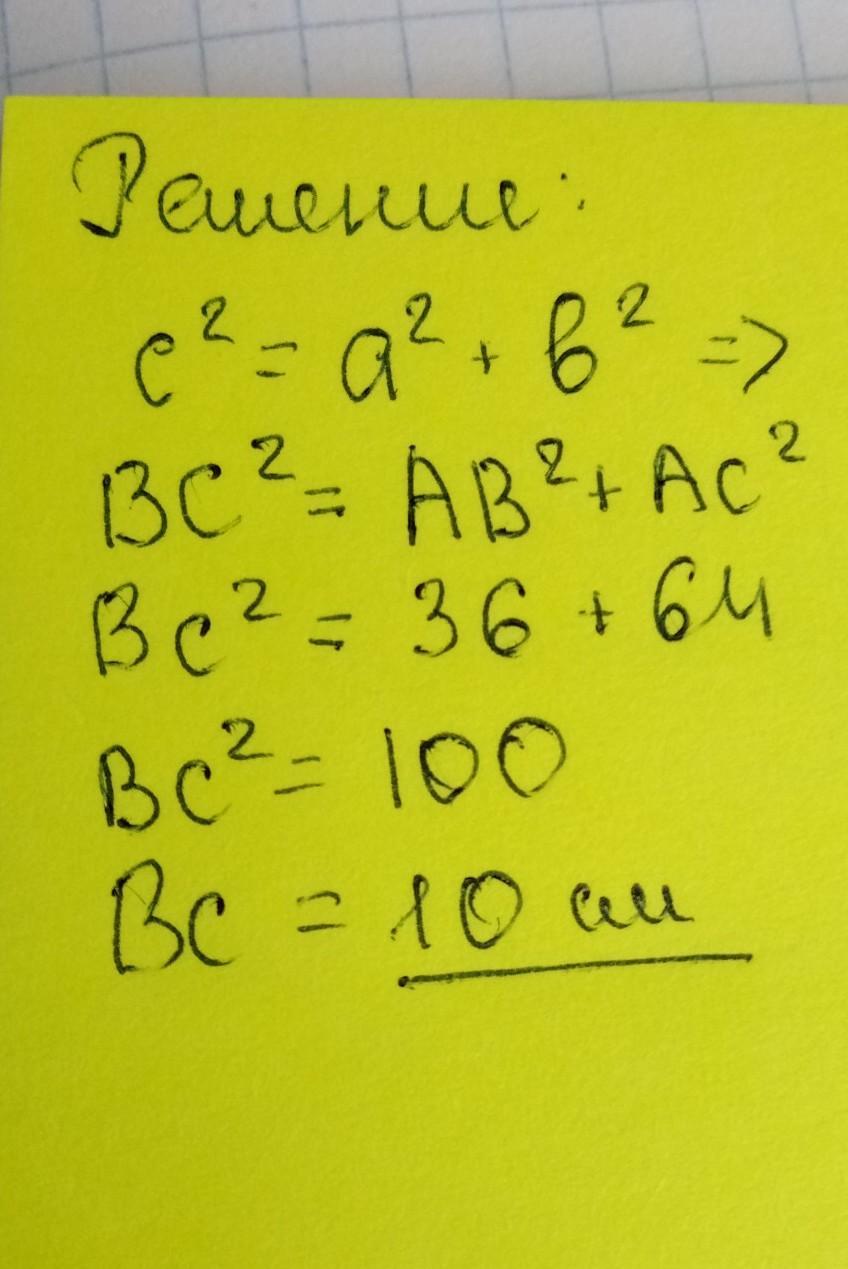 Решение:
c² = a² + b² =>
BC² = AB² + AC²
BC² = 36 + 64
BC² = 100
BC = 10 см